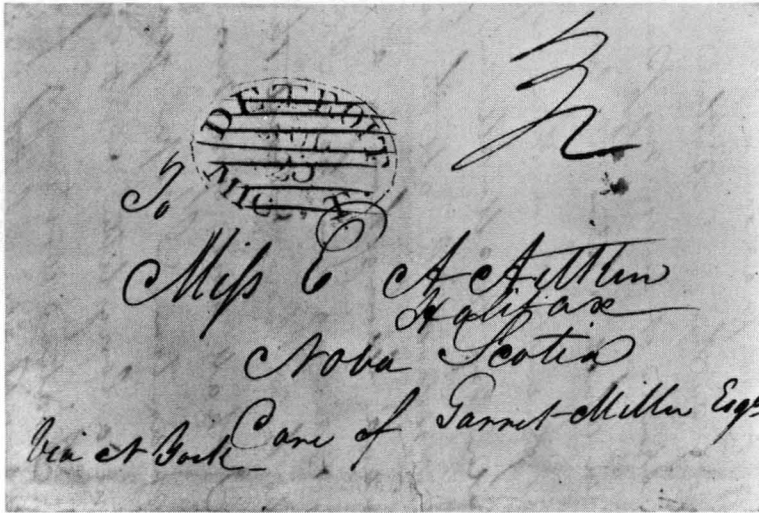 DETROIT
MIC. T.
To
Miss C A
Halifax
Nova Scotia
Care of Garret Miller Esqr
Via N York